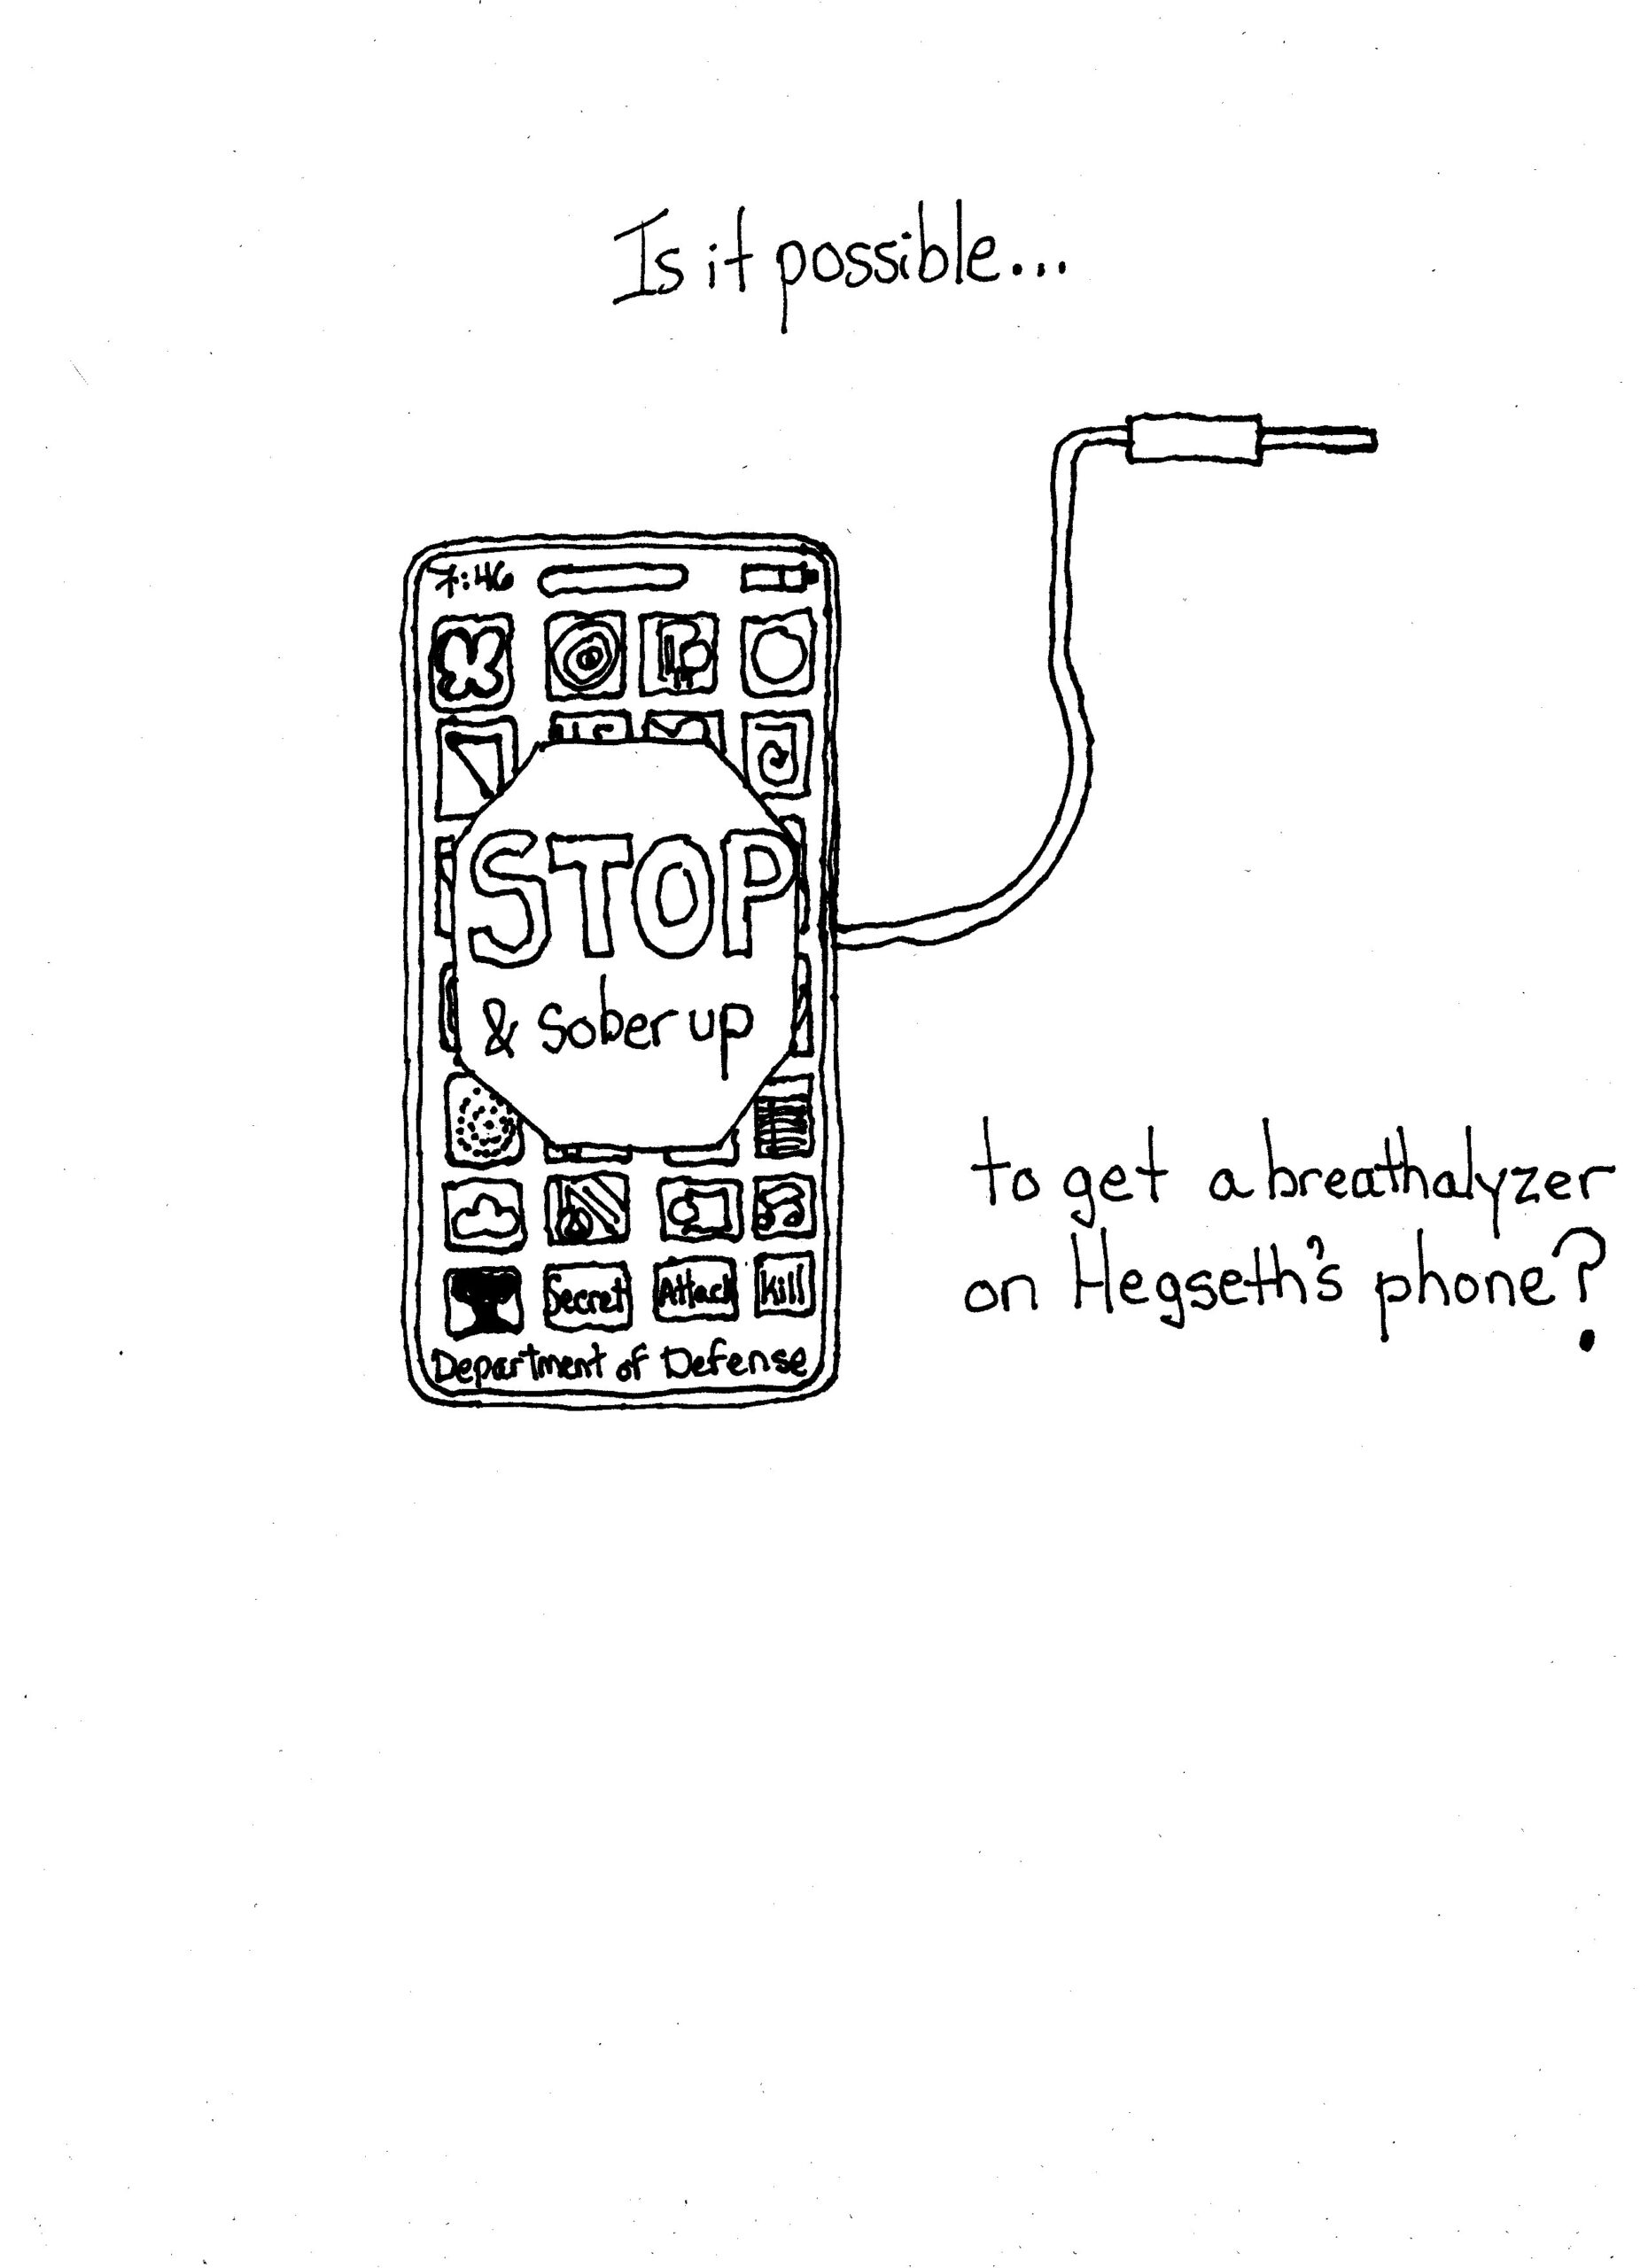 Is it possible...
7:46
STOP
& sober up
to get a breathalyzer
on Hegseth's phone?
Secret Attack Kill
Department of Defense